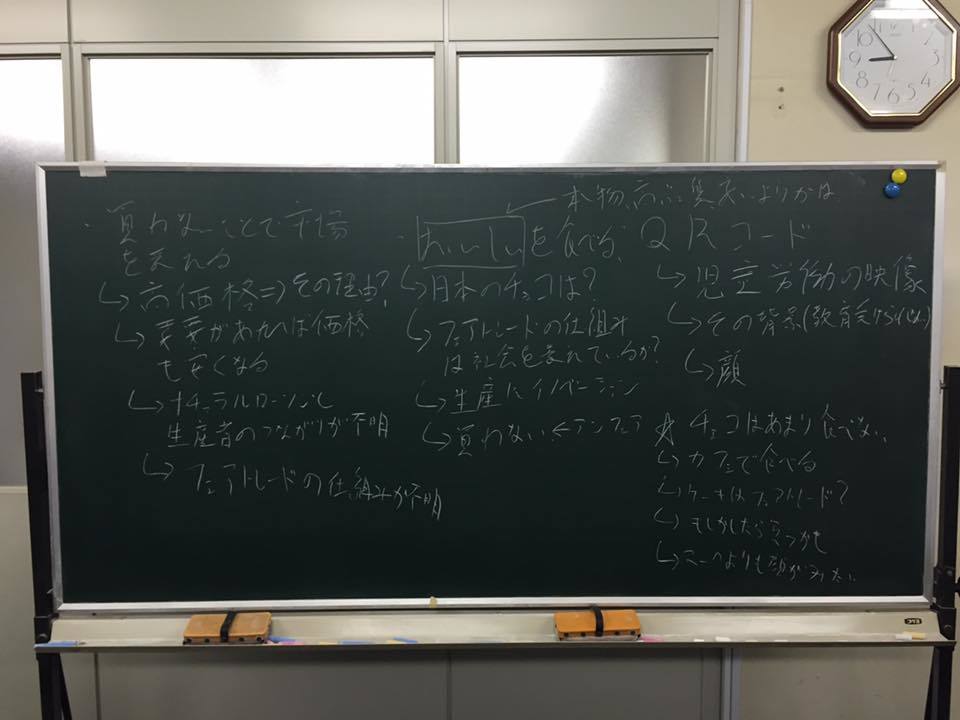 ・買わないことで市場
を変える
↳高価格⇒その理由?
↳需要があれば価格
も安くなる
↳ナチュラルローソンと
生産者のつながりが不明
↳フェアトレードの仕組みが不明
本物、高品質
・おいしいを食べる
↳日本のチョコは?
↳フェアトレードの仕組み
は社会を変れているか?
↳生産にイノベーション
↳買わない←アンフェア
QRコード
↳児童労働の映像
↳その背景(教育受けられない)
↳顔
☆チョコはあまり食べない
↳カフェで食べる
↳ケーキはフェアトレード?
↳もしかしたら買うかも
↳よりも顔がみたい
10
9
8
7
6
5
4
3
2
ELC